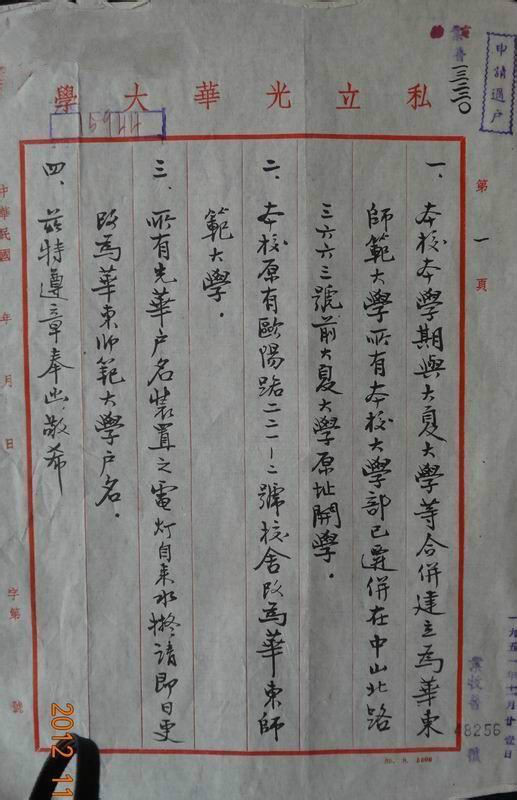 申請過戶
業普一三三〇
私立光華大學
15944
第一頁
一、本校本學期與大夏大學等合併建立為華東
師範大學所有本校大學部已遷併在中山北路
三六六三號前大夏大學原址開學．
二、本校原有歐陽路二二一－二號校舍改為華東師
範大學．
三、所有光華戶名裝置之電灯自来水擬請即日更
改為華東师範大學户名．
四、茲特遵章奉函敬希
中華民國 年 月 日
字第 號
業收普
48256
號
2012 11